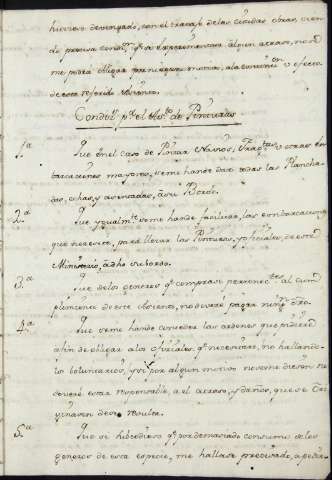 huviere devengado, con el trabajo de las citadas obras, sien
do precisa condiz.n q.e si Experimentare algun atraso, no se
me podrá obligar por ningun motivo, a la continuaz.on o efecto
de este referido Asiento.
Condiz.s p.a el de Pinturas
1.a Que en el caso de Pintar Navios, Fragatas u otras em
barcaciones mayores, se me han de dar todas las Plancha
das, echas, y aventadas, a su Bordo.
2.a Que ygualm.te se me han de facilitar, las embarcaciones
que necesite, para llevar las Pinturas, y oficiales, de este
Ministerio, a dho su bordo.
3.a Que de los generos q.e comprase pertenec.tes al cum
plimiento de este Asiento, no deveré pagar ning.n dro.
4.a Que se me han de conceder las ordenes que pidiere
a fin de obligar a los oficiales q.e necesitare, no hallando
lo boluntarios, y si por algun motivo no se me diesen no
deveré estar responsable, a el atraso, y daños, que se
originasen de su resulta.
5.a Que si subcediese q.e por demasiado consumo de los
generos de esta especie, me hallase precisado, a pedir